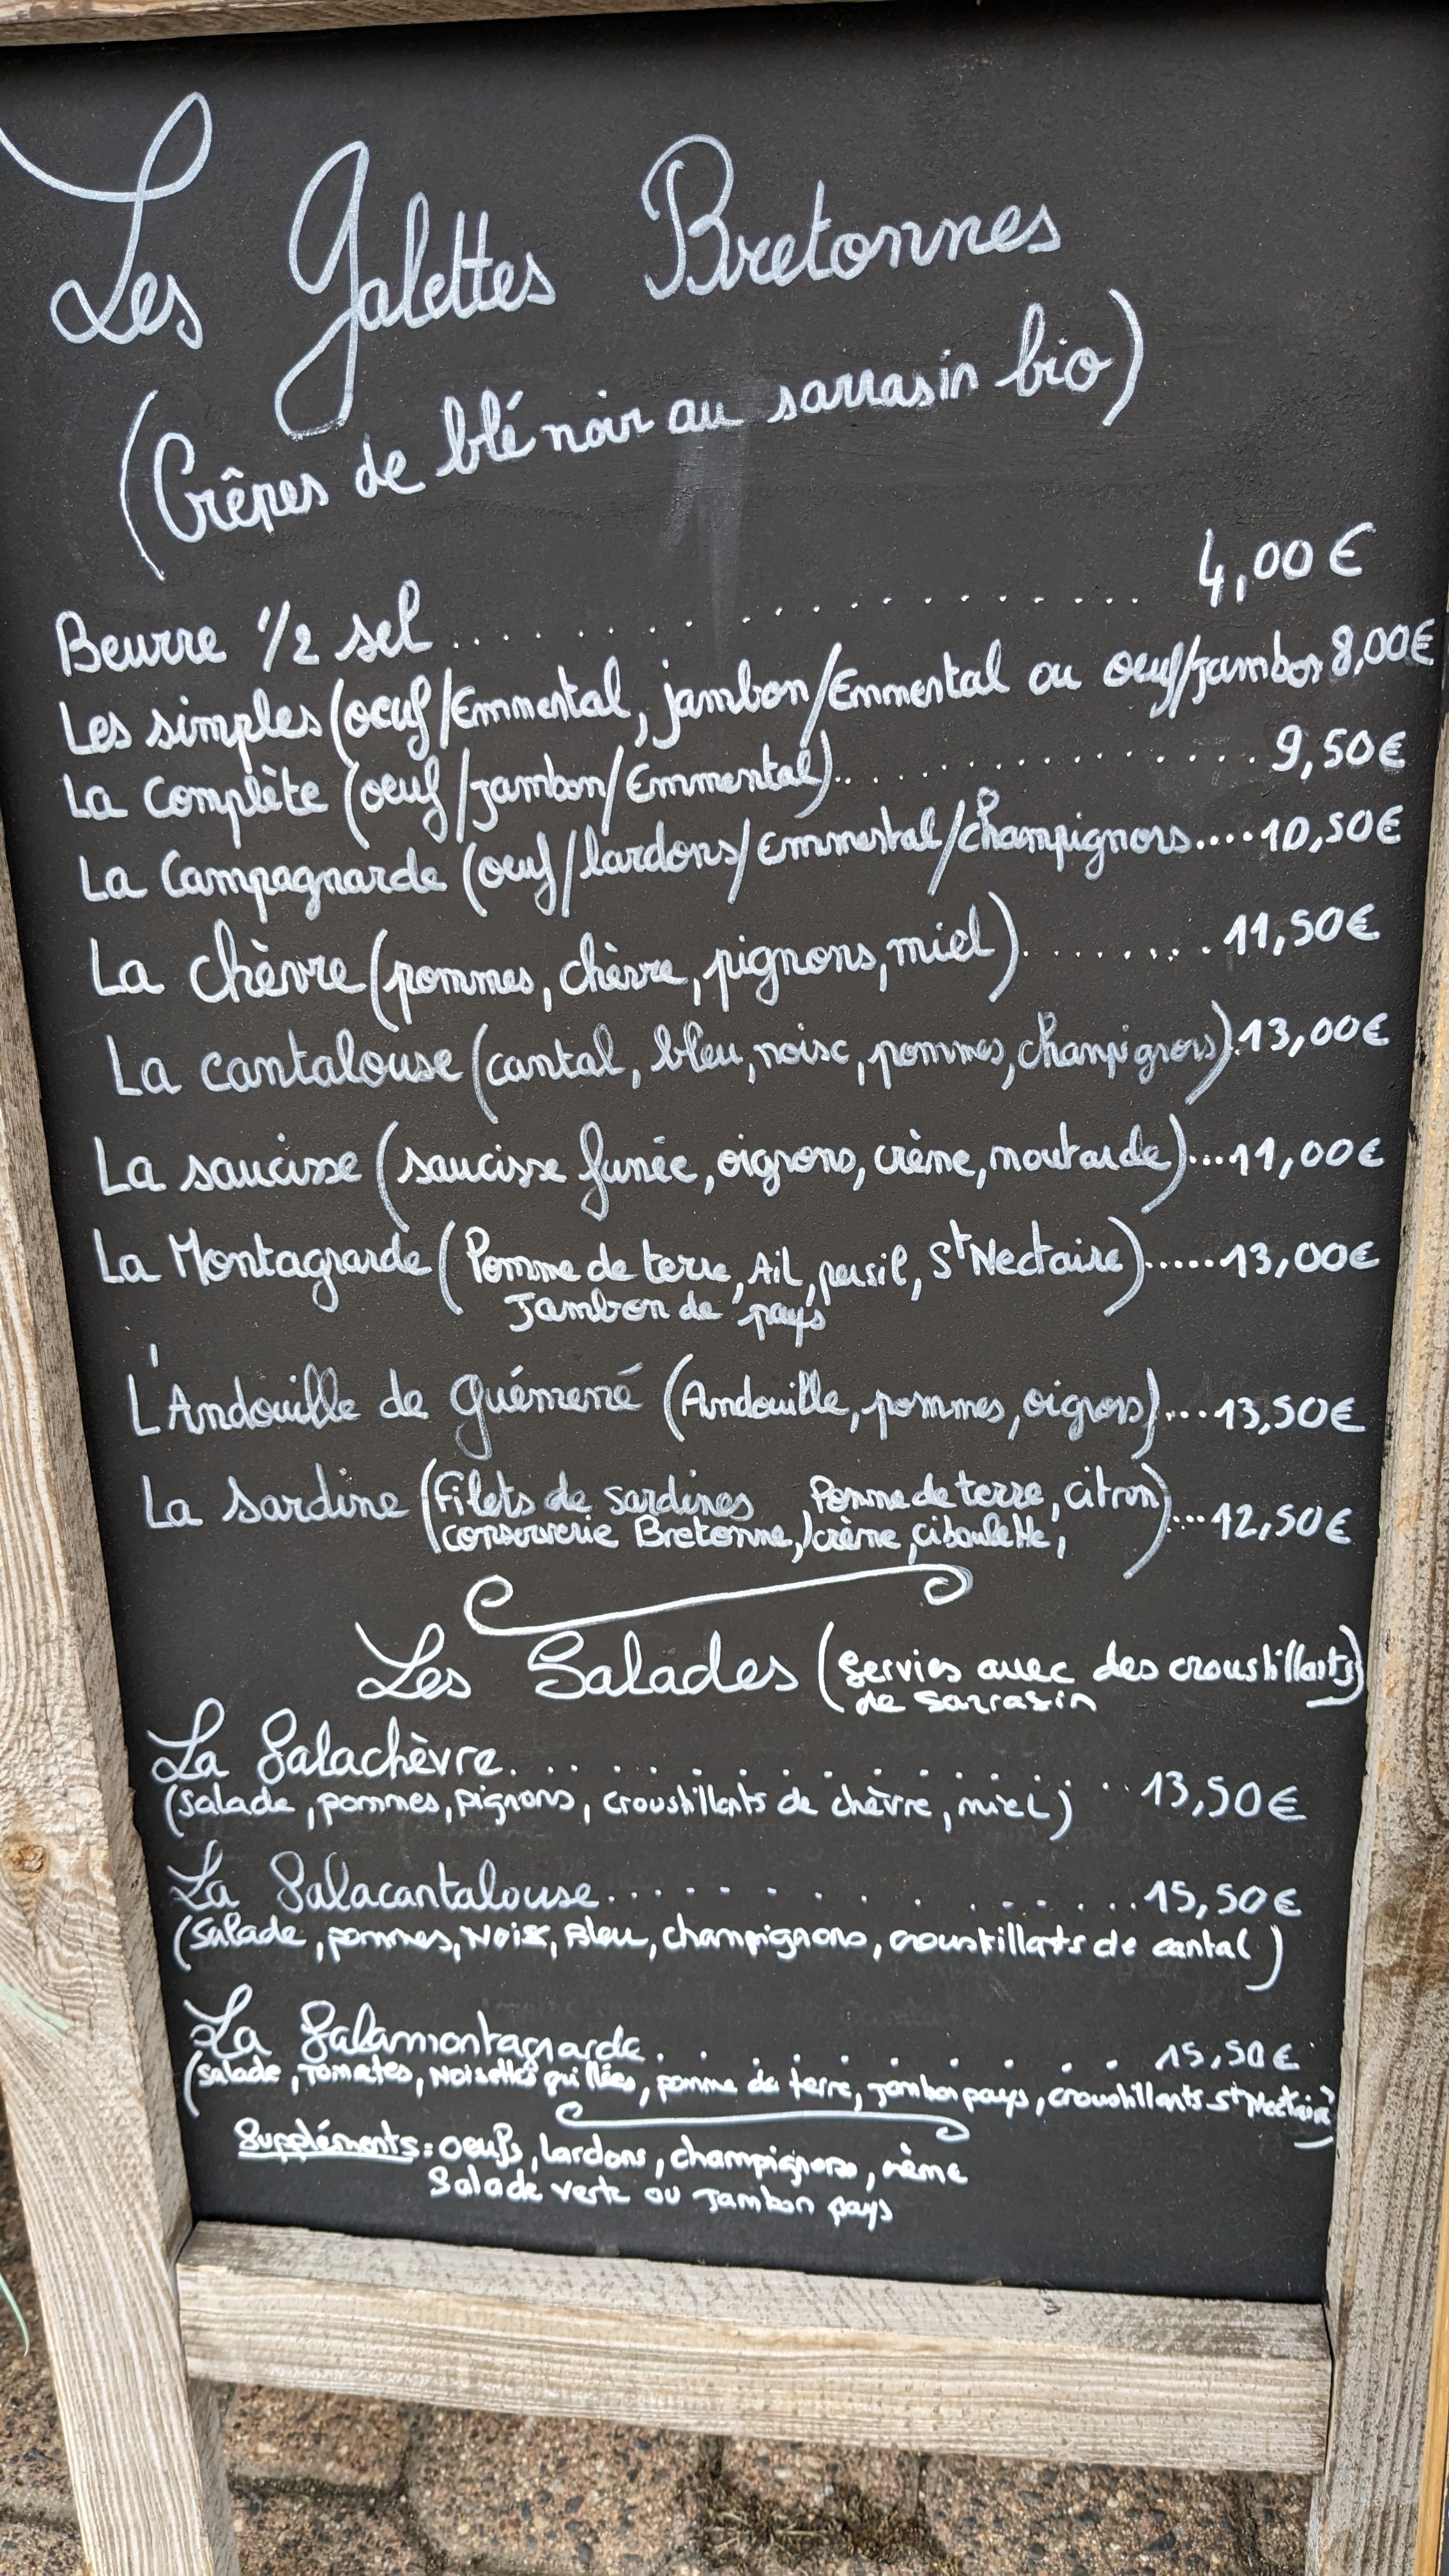 Les Galettes Bretonnes
(Crêpes de blé noir au sarrasin bio)
Beurre 1/2 sel .................. 4,00€
Les simples (oeuf/Emmental, jambon/Emmental ou oeuf/jambon 8,00€
La Complète (oeuf/jambon/Emmental).................. 9,50€
La Campagnarde (oeuf/lardons/Emmental/champignons....10,50€
La chèvre (pommes, chèvre, pignons, miel)........11,50€
La cantalouse (cantal, bleu, noix, pommes, champignons).13,00€
La saucisse (saucisse fumée, oignons, crème, moutarde)...11,00€
La Montagnarde (Pomme de terre, Ail, persil, St Nectaire)......13,00€
Jambon de pays
L'Andouille de Guémené (Andouille, pommes, oignons)....13,50€
La sardine (Filets de sardines Pomme de terre, citron)....12,50€
conserverie Bretonne, crème, ciboulette,
Les Salades (Servies avec des croustillants)
de Sarrasin
La Salachèvre.................. 13,50€
(Salade, pommes, pignons, croustillants de chèvre, miel)
La Salacantalouse.................. 15,50€
(Salade, pommes, Noix, Bleu, champignons, croustillants de cantal)
La Salamontagnarde.................. 15,50€
(Salade, Tomates, Noisettes grillées, pomme de terre, jambon pays, croustillants St Nectaire)
Suppléments: oeufs, lardons, champignons, crème
Salade verte ou Jambon pays